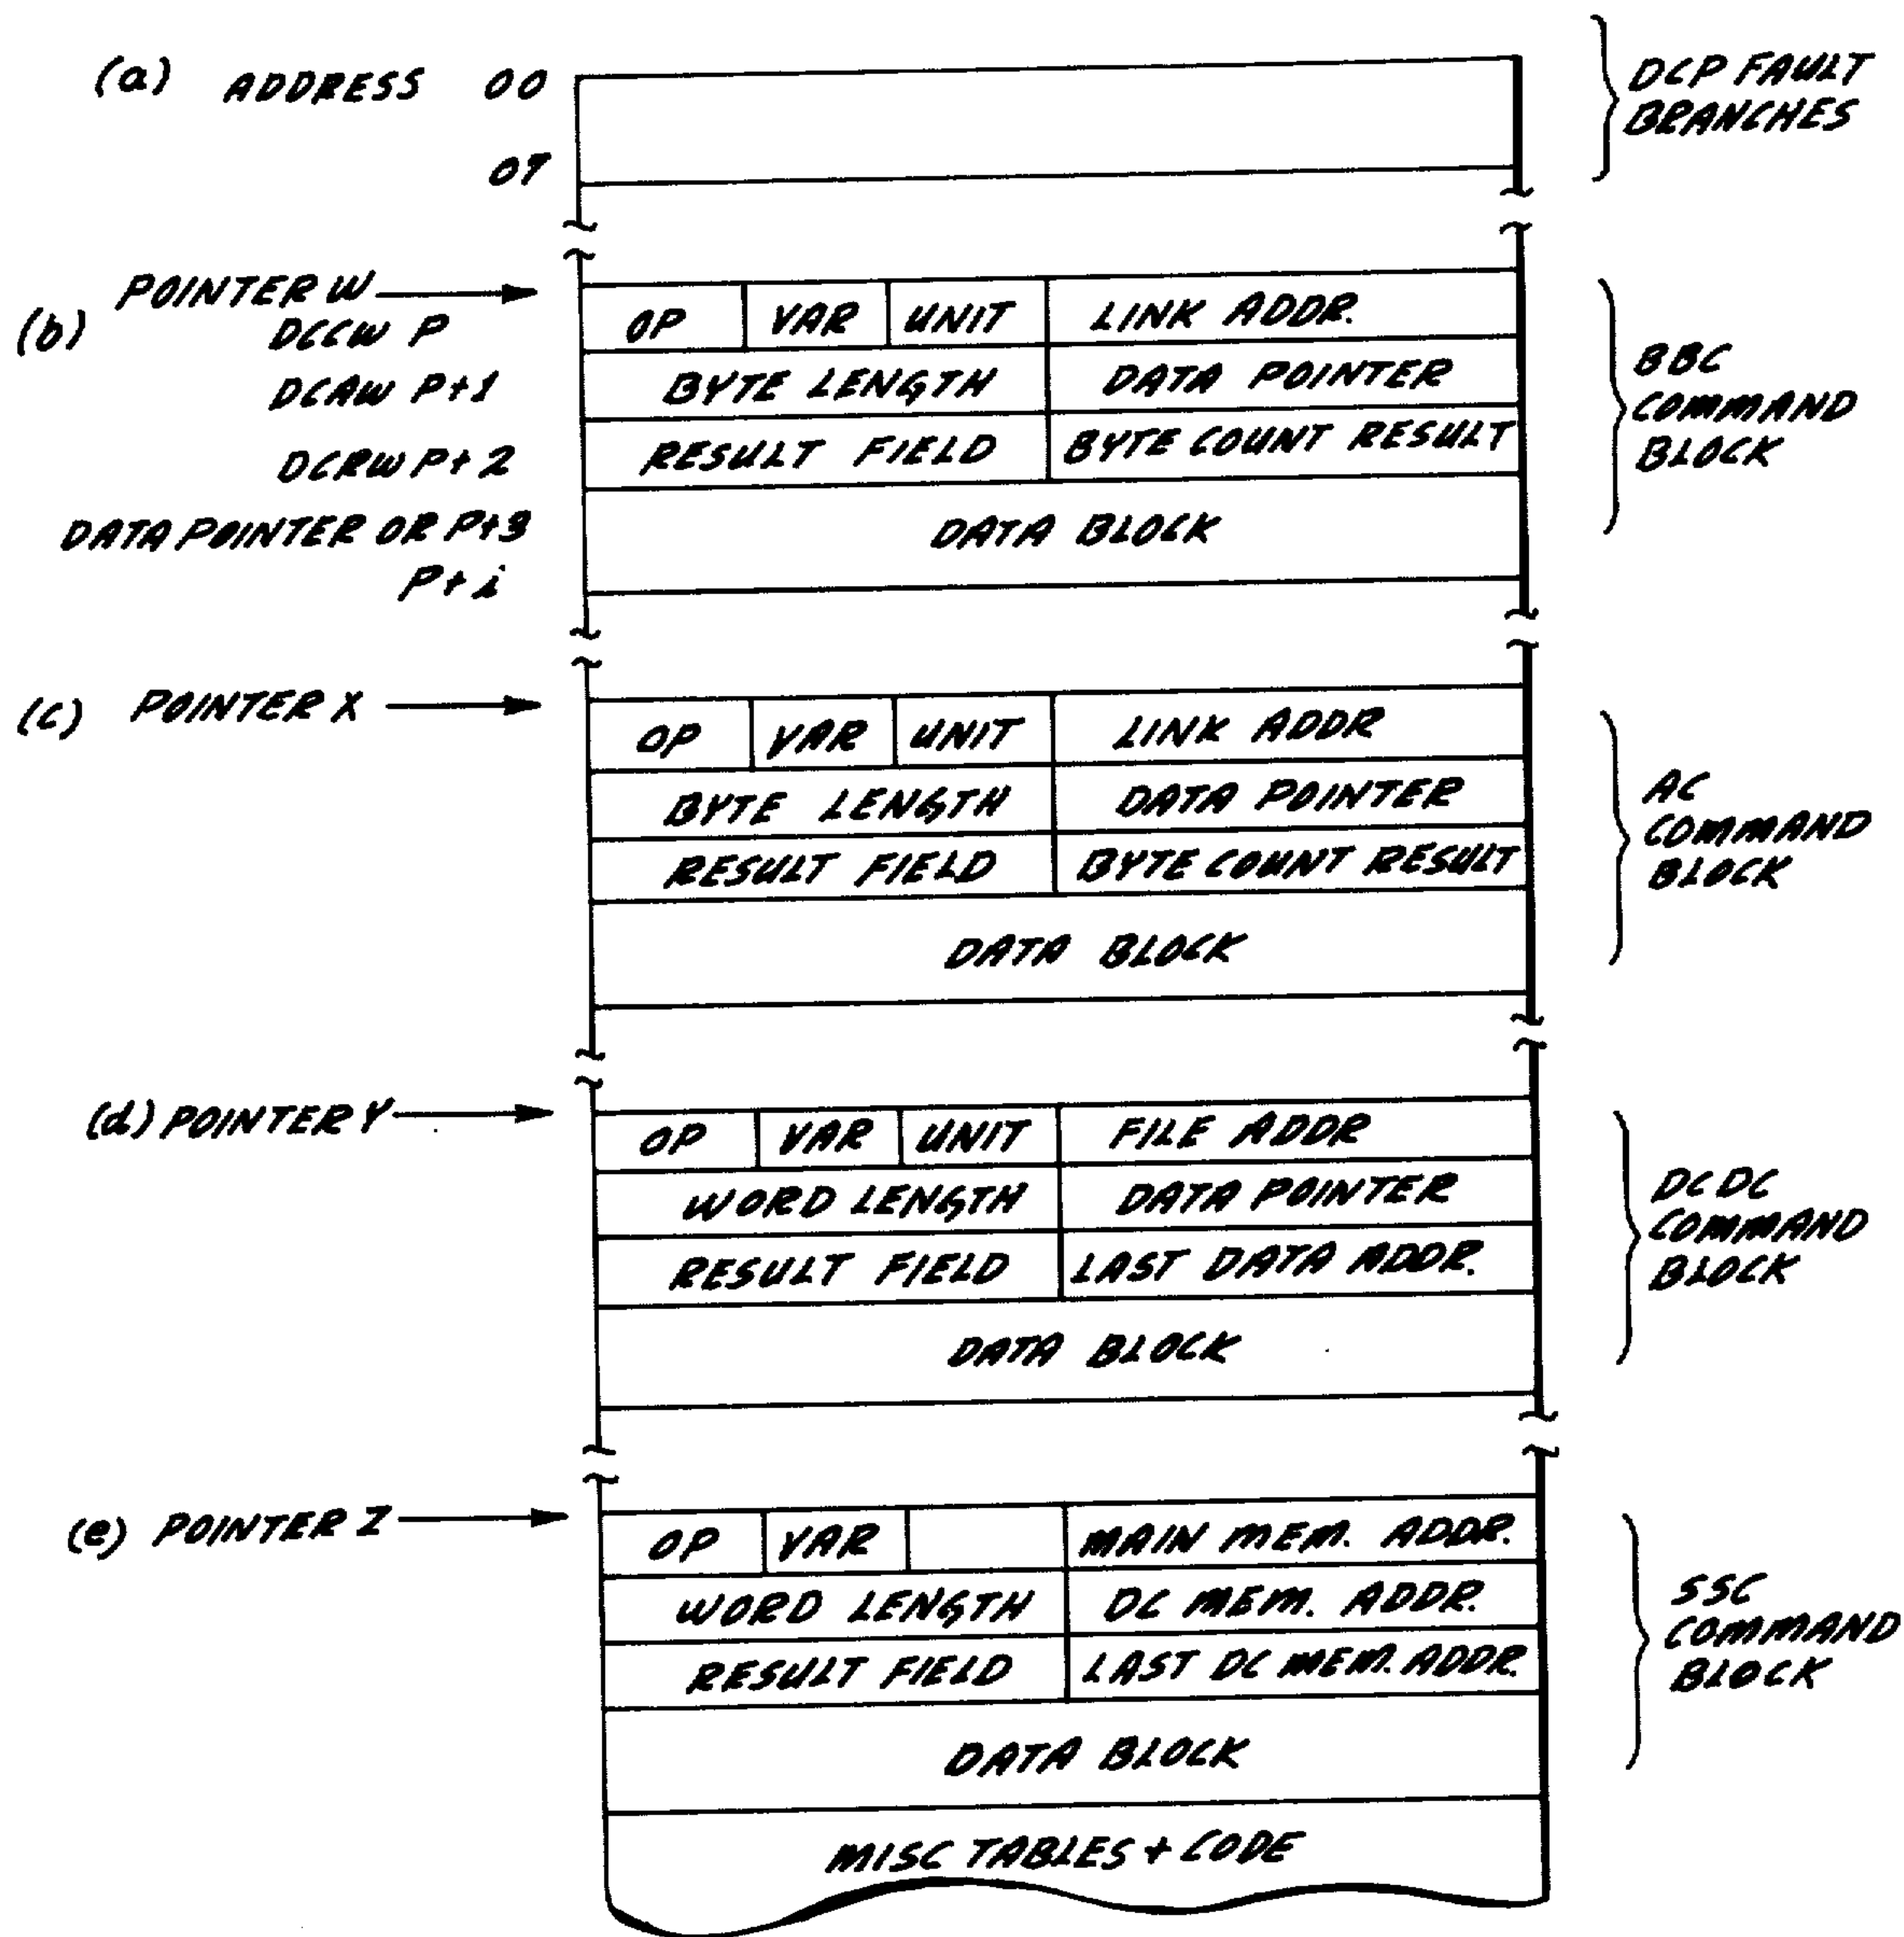 (a) ADDRESS 00
07
DCP FAULT
BRANCHES
(b) POINTER W
DCCW P
DCAW P+1
DCRW P+2
DATA POINTER OR P+3
P+i
OP VAR UNIT LINK ADDR.
BYTE LENGTH DATA POINTER
RESULT FIELD BYTE COUNT RESULT
DATA BLOCK
BBC
COMMAND
BLOCK
(c) POINTER X
OP VAR UNIT LINK ADDR
BYTE LENGTH DATA POINTER
RESULT FIELD BYTE COUNT RESULT
DATA BLOCK
AC
COMMAND
BLOCK
(d) POINTER Y
OP VAR UNIT FILE ADDR
WORD LENGTH DATA POINTER
RESULT FIELD LAST DATA ADDR.
DATA BLOCK
DCDC
COMMAND
BLOCK
(e) POINTER Z
OP VAR MAIN MEM. ADDR.
WORD LENGTH DC MEM. ADDR.
RESULT FIELD LAST DC MEM. ADDR.
DATA BLOCK
SSC
COMMAND
BLOCK
MISC TABLES + CODE